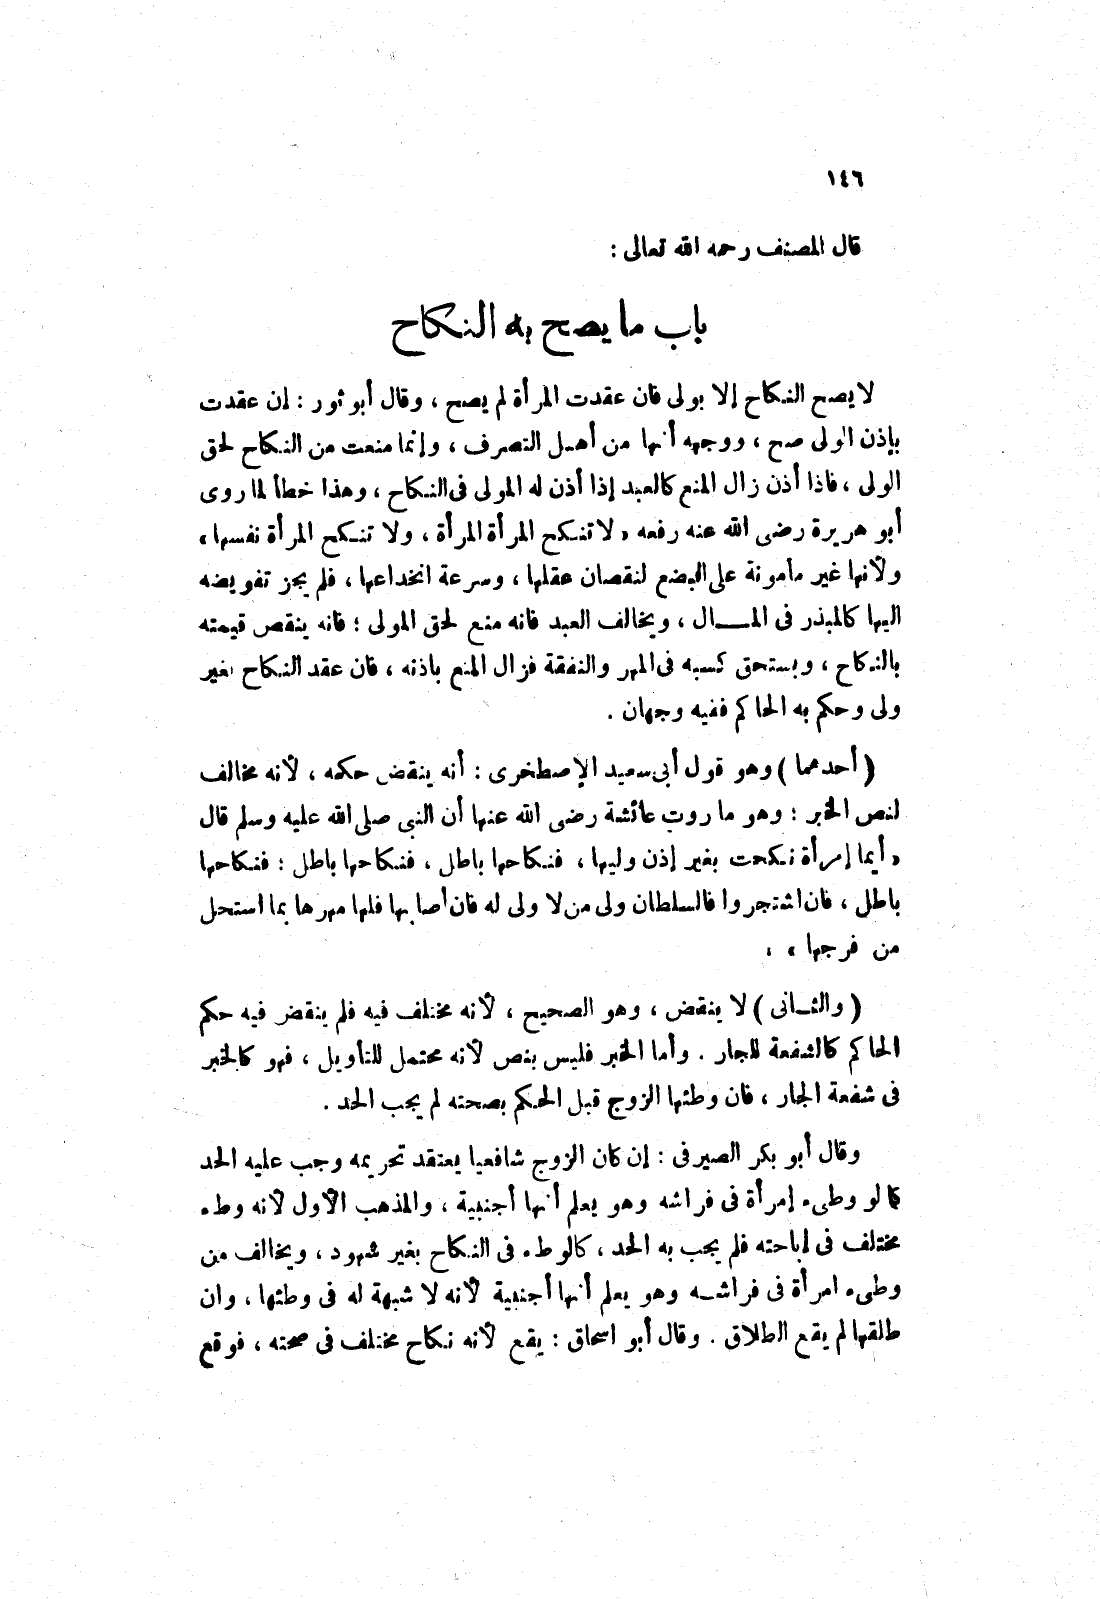 ١٤٦
قال المصنف رحمه الله تعالى :
باب ما يصح به النكاح
لا يصح النكاح إلا بولى فان عقدت المرأة لم يصح ، وقال أبو ثور : إن عقدت
بإذن الولى صح ، ووجهه أنها من أهل التصرف ، وإنما منعت من النكاح لحق
الولى ، فاذا أذن زال المنع كالعبد إذا أذن له المولى فى النكاح ، وهذا خطأ لما روى
أبو هريرة رضى الله عنه رفعه « لا تنكح المرأة المرأة ، ولا تنكح المرأة نفسها »
ولأنها غير مأمونة على البضع لنقصان عقلها ، وسرعة انخداعها ، فلم يجز تفويضه
اليها كالمبذر فى المال ، ويخالف العبد فانه منع لحق المولى ؛ فانه ينقص قيمته
بالنكاح ، ويستحق كسبه فى المهر والنفقة فزال المنع باذنه ، فان عقد النكاح بغير
ولى وحكم به الحاكم ففيه وجهان .
( أحدهما ) وهو قول أبى سعيد الإصطخرى : أنه ينقض حكمه ، لأنه مخالف
لنص الخبر ؛ وهو ما روت عائشة رضى الله عنها أن النبى صلى الله عليه وسلم قال
« أيما إمرأة نكحت بغير إذن وليها ، فنكاحها باطل ، فنكاحها باطل ؛ فنكاحها
باطل ، فان اشتجروا فالسلطان ولى من لا ولى له فان أصابها فلها مهرها بما استحل
من فرجها » ،
( والثانى ) لا ينقض ، وهو الصحيح ، لأنه مختلف فيه فلم ينقض فيه حكم
الحاكم كالشفعة للجار . وأما الخبر فليس بنص لأنه محتمل للتأويل ، فهو كالخبر
فى شفعة الجار ، فان وطئها الزوج قبل الحكم بصحته لم يجب الحد .
وقال أبو بكر الصيرفى : إن كان الزوج شافعيا يعتقد تحريمه وجب عليه الحد
كما لو وطىء إمرأة فى فراشه وهو يعلم أنها أجنبية ، والمذهب الأول لأنه وطء
مختلف فى إباحته فلم يجب به الحد ، كالوطء فى النكاح بغير شهود ، ويخالف من
وطىء امرأة فى فراشه وهو يعلم أنها أجنبية لأنه لا شبهة له فى وطئها ، وان
طلقها لم يقع الطلاق . وقال أبو اسحاق : يقع لأنه نكاح مختلف فى صحته ، فوقع